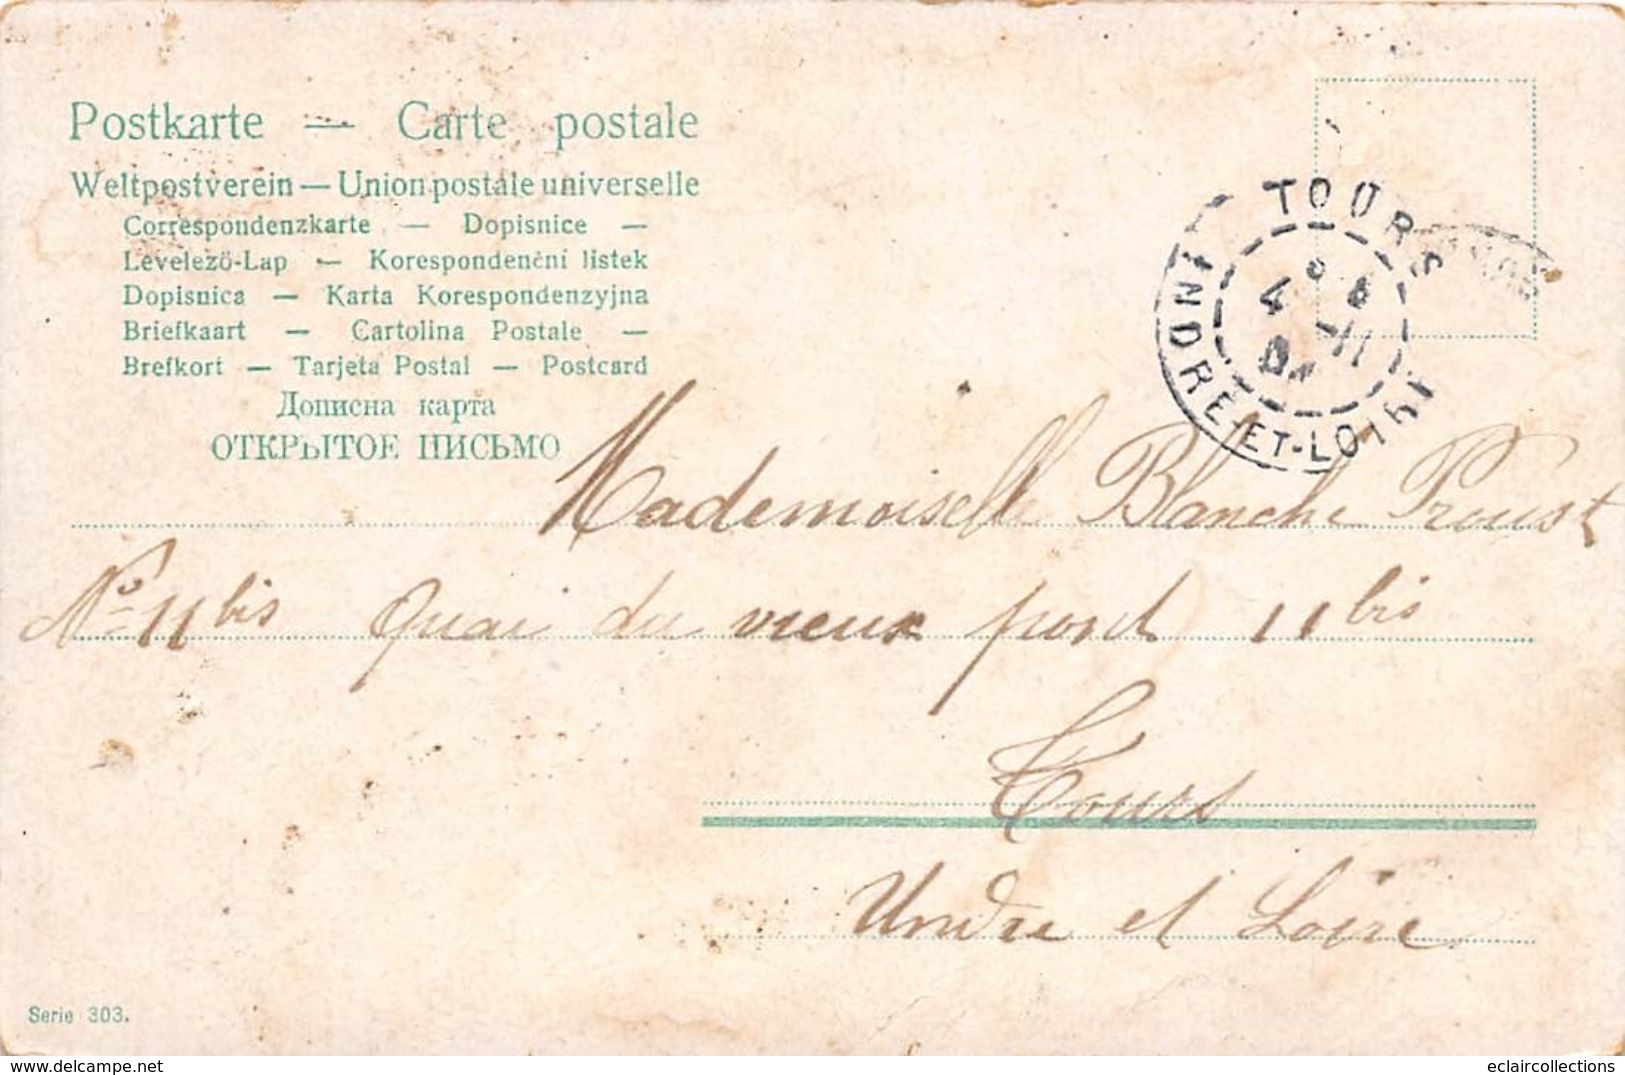 Postkarte — Carte postale
Weltpostverein — Union postale universelle
Correspondenzkarte — Dopisnice —
Levelező-Lap — Korespondenční listek
Dopisnica — Karta Korespondenzyjna
Briefkaart — Cartolina Postale —
Brefkort — Tarjeta Postal — Postcard
Дописна карта
ОТКРЫТОЕ ПИСЬМО
TOURS
INDRE-ET-LOIRE
Mademoiselle Blanche Proust
No 11 bis Quai du vieux pont 11 bis
Tours
Undre et Loire
Serie 303.
www.delcampe.net
eclaircollections